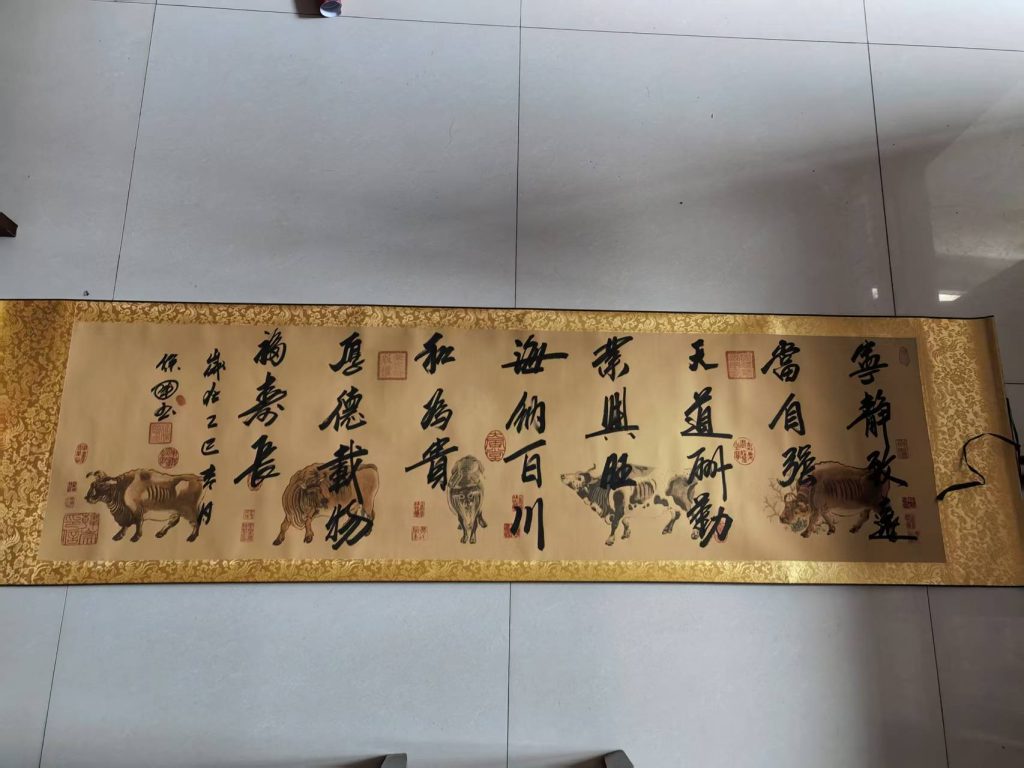 寧靜致遠
當自強
天道酬勤
業興旺
海納百川
和為貴
厚德載物
福壽長
歲在乙巳吉月
保國书